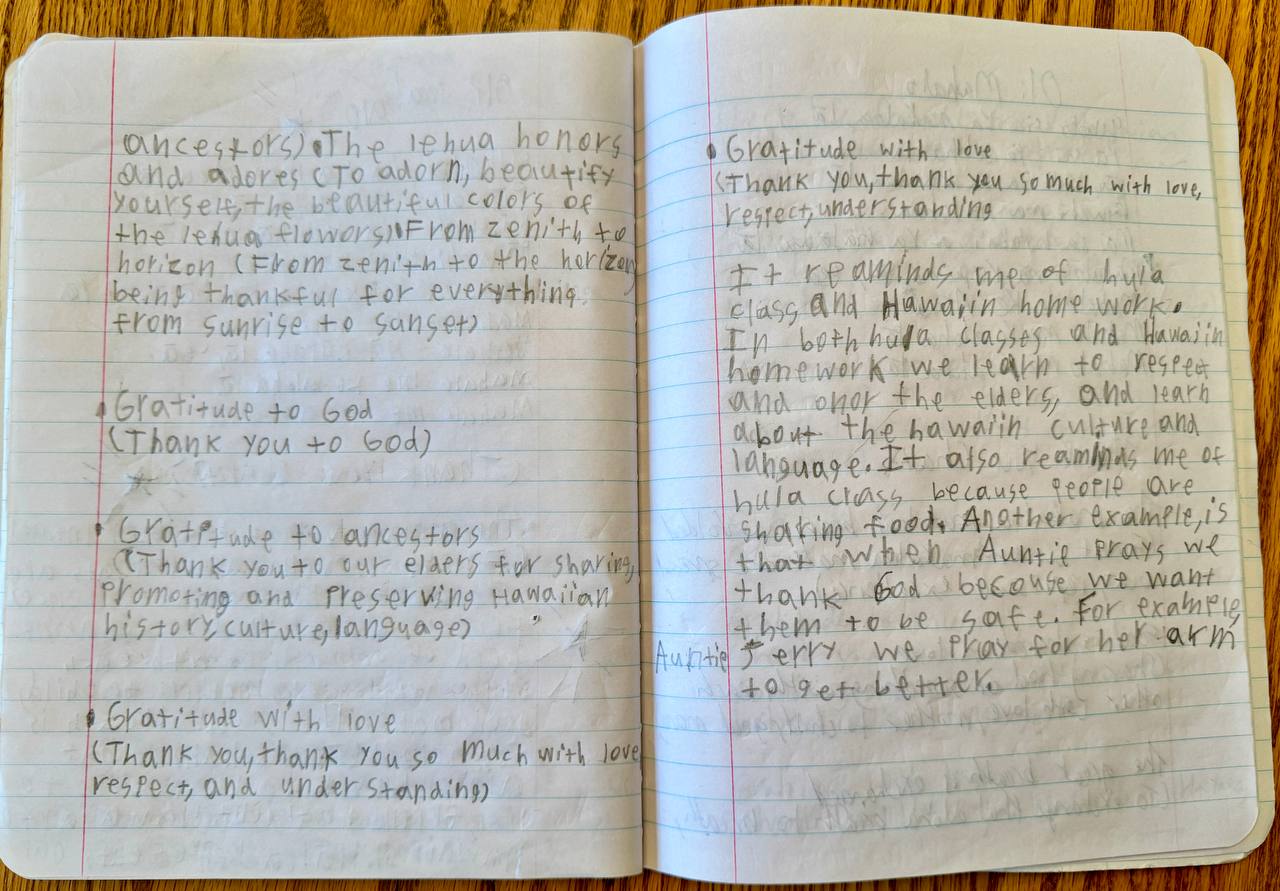 ancestors) • The lehua honors
and adores (To adorn, beautify
yourself, the beautiful colors of
the lehua flowers) • From zenith to
horizon (From zenith to the horizon
being thankful for everything
from sunrise to sunset)
• Gratitude to God
(Thank you to God)
• Gratitude to ancestors
(Thank you to our elders for sharing,
Promoting and Preserving Hawaiian
history, culture, language)
• Gratitude with love
(Thank you, thank you so much with love
respect, and understanding)
• Gratitude with love
(Thank you, thank you so much with love,
respect, understanding
It reaminds me of hula
class and Hawaiin home work.
In both hula classes and Hawaiin
homework we learn to respect
and onor the elders, and learn
about the hawaiin culture and
language. It also reaminds me of
hula class because people are
sharing food. Another example, is
that when Auntie prays we
thank God because we want
them to be safe. For example,
Auntie Jerry we pray for her arm
to get better.